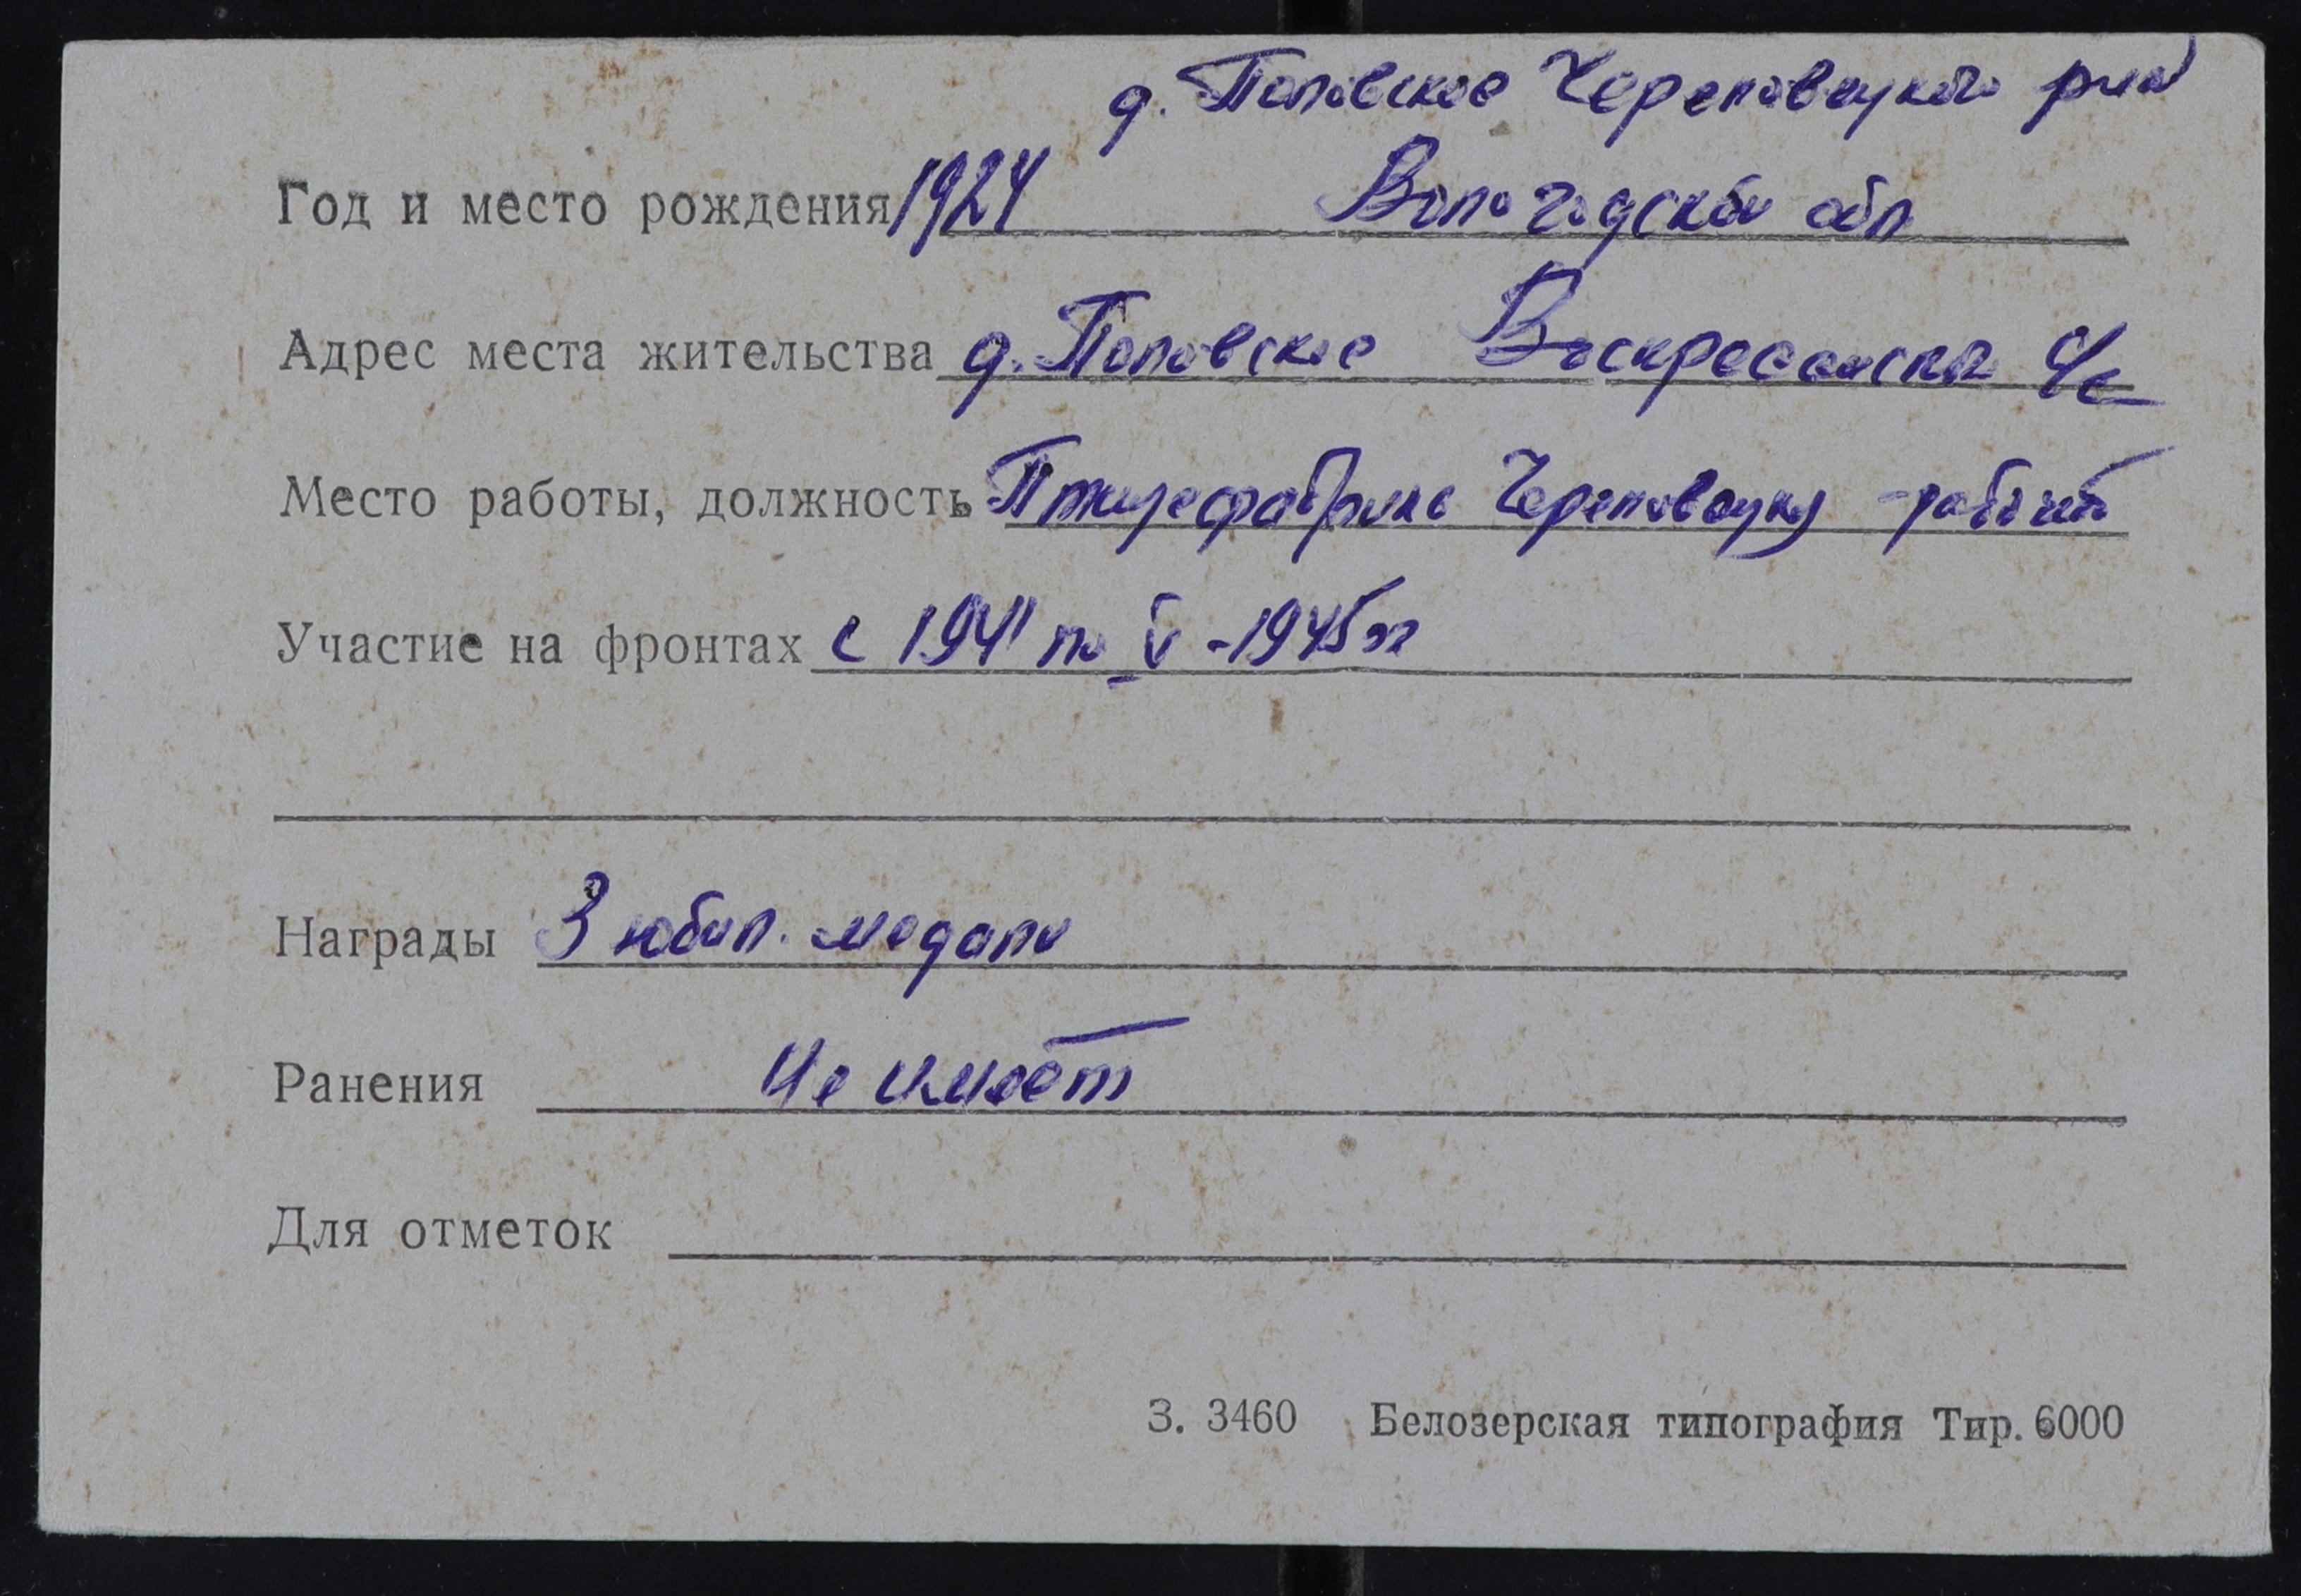 д. Поповское Череповецкого р-на
Год и место рождения 1924 Вологодской обл
Адрес места жительства д. Поповское Воскресенский с/с
Место работы, должность Птицефабрика Череповецкая - рабочий
Участие на фронтах с 1941 по V - 1945 гг
Награды 3 юбил. медали
Ранения Не имеет
Для отметок
З. 3460 Белозерская типография Тир. 6000